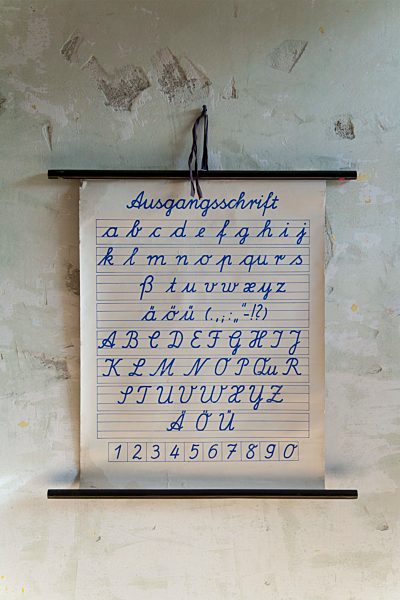 Ausgangsschrift
a b c d e f g h i j
k l m n o p qu r s
ß t u v w x y z
ä ö ü (.,;:„“-!?)
A B C D E F G H I J
K L M N O P Qu R
S T U V W X Y Z
Ä Ö Ü
1 2 3 4 5 6 7 8 9 0